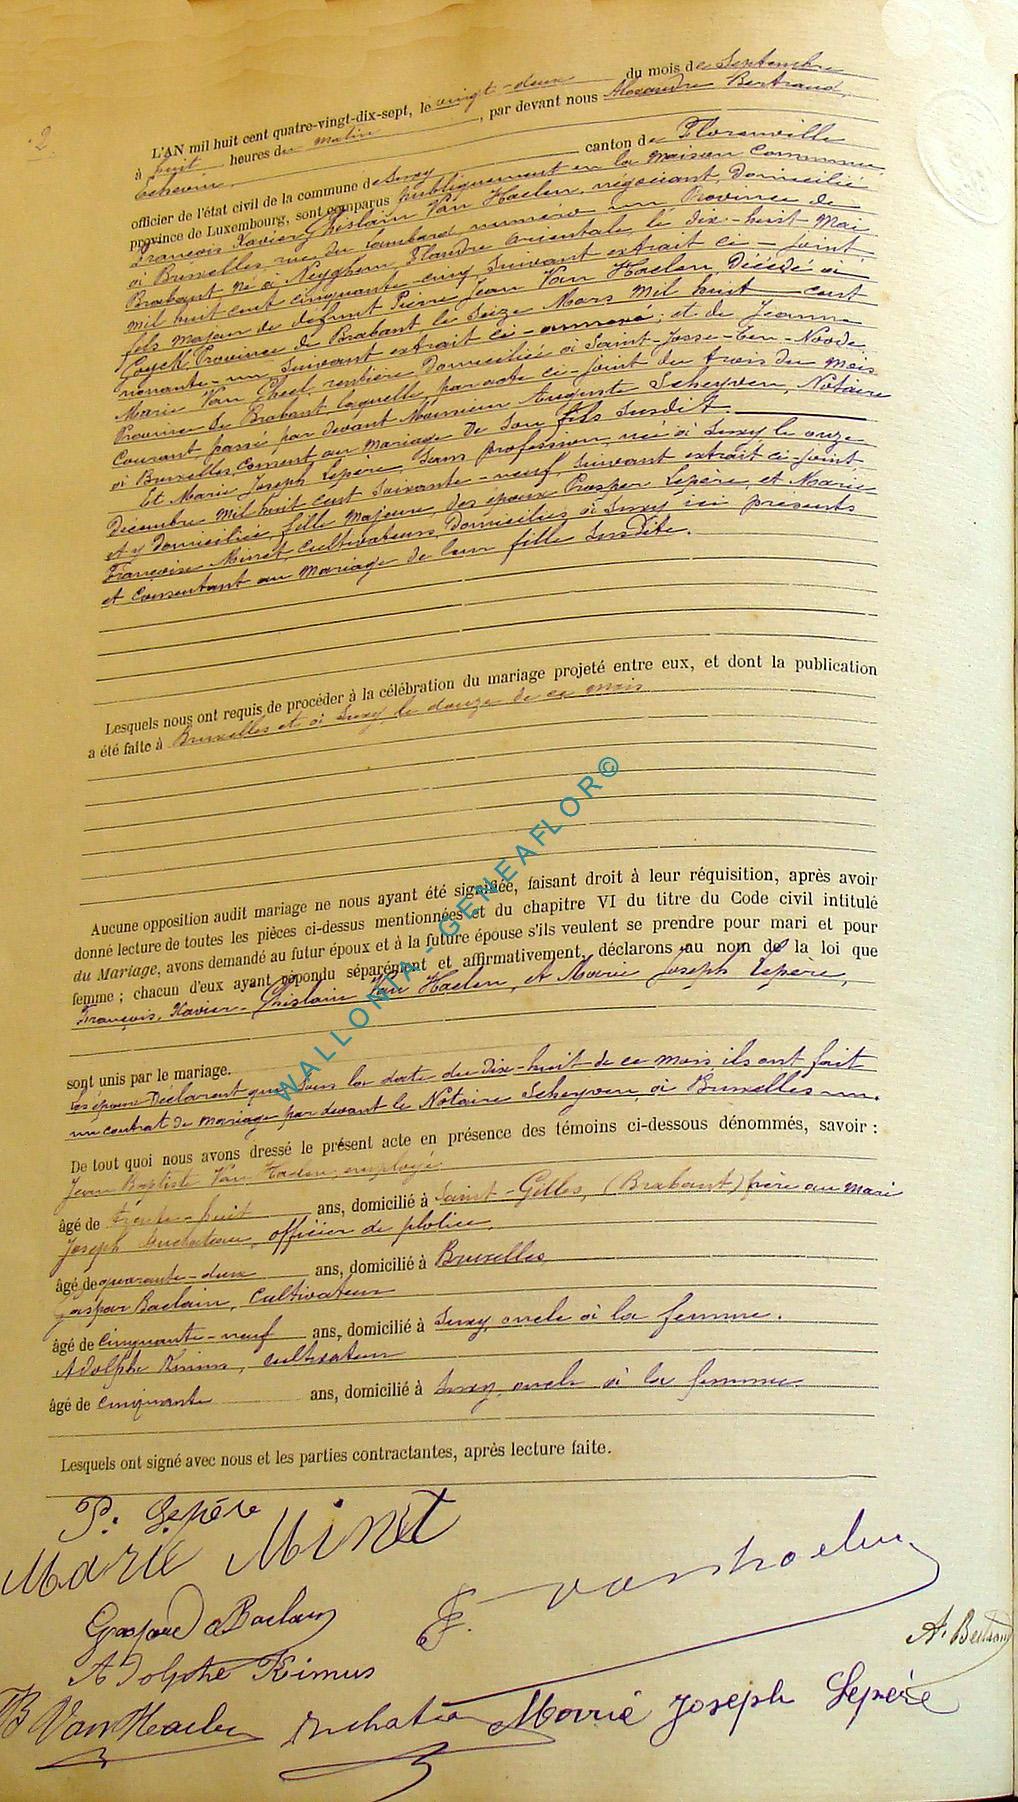 2.
L'AN mil huit cent quatre-vingt-dix-sept, le vingt-deux du mois de Septembre
à huit heures du matin, par devant nous Alexandre Bertrand,
Echevin
officier de l'état civil de la commune de Suxy canton de Florenville
province de Luxembourg, sont comparus publiquement en la maison commune
François Xavier Ghislain Van Haelen, négociant, domicilié
à Bruxelles, rue du Lombard numéro un Province de
Brabant, né à Neyghem, Flandre Orientale, le dix-huit Mai
mil huit cent cinquante-cinq, suivant extrait ci-joint,
fils majeur de défunt Pierre Jean Van Haelen, décédé à
Province de Brabant, le Seize Mars mil huit cent
nonante-un, suivant extrait ci-annexé; et de Jeanne
Marie Van rentière domiciliée à Saint-Josse-Ten-Noode
Province de Brabant, laquelle par acte ci-joint du trois du mois
courant passé par devant Monsieur Auguste Scheyven, Notaire
à Bruxelles, consent au mariage de son fils susdit.
Et Marie Joseph Lepère, sans profession, née à Suxy le onze
Décembre mil huit cent soixante-neuf, suivant extrait ci-joint
et y domiciliée, fille majeure des époux Prosper Lepère, et Marie
Françoise Minet, cultivateurs, domiciliés à Suxy ici présents
et consentant au mariage de leur fille susdite.
Lesquels nous ont requis de procéder à la célébration du mariage projeté entre eux, et dont la publication
a été faite à Bruxelles et à Suxy le douze de ce mois
Aucune opposition audit mariage ne nous ayant été signifiée, faisant droit à leur réquisition, après avoir
donné lecture de toutes les pièces ci-dessus mentionnées et du chapitre VI du titre du Code civil intitulé
du Mariage, avons demandé au futur époux et à la future épouse s'ils veulent se prendre pour mari et pour
femme ; chacun d'eux ayant répondu séparément et affirmativement, déclarons au nom de la loi que
François, Xavier-Ghislain Van Haelen, et Marie Joseph Lepère,
sont unis par le mariage.
Les époux Déclarent que sous la date du Dix-huit de ce mois ils ont fait
un contrat de mariage par devant le Notaire Scheyven, à Bruxelles
De tout quoi nous avons dressé le présent acte en présence des témoins ci-dessous dénommés, savoir :
Jean Baptiste Van Haelen, employé
âgé de trente-huit ans, domicilié à Saint-Gilles, (Brabant) frère au mari
Joseph officier de police
âgé de quarante-deux ans, domicilié à Bruxelles
Gaspar Baclain, cultivateur
âgé de cinquante-neuf ans, domicilié à Suxy, oncle à la femme.
Adolphe Kimus, cultivateur
âgé de cinquante ans, domicilié à Suxy, oncle à la femme
Lesquels ont signé avec nous et les parties contractantes, après lecture faite.
P. Lepère
Marie Minet
F. Van Haelen
Gaspard Baclain
A. Bertrand
Adolphe Kimus
JB Van Haelen
Marie Joseph Lepère
WALLONIA - GENEAFLOR©